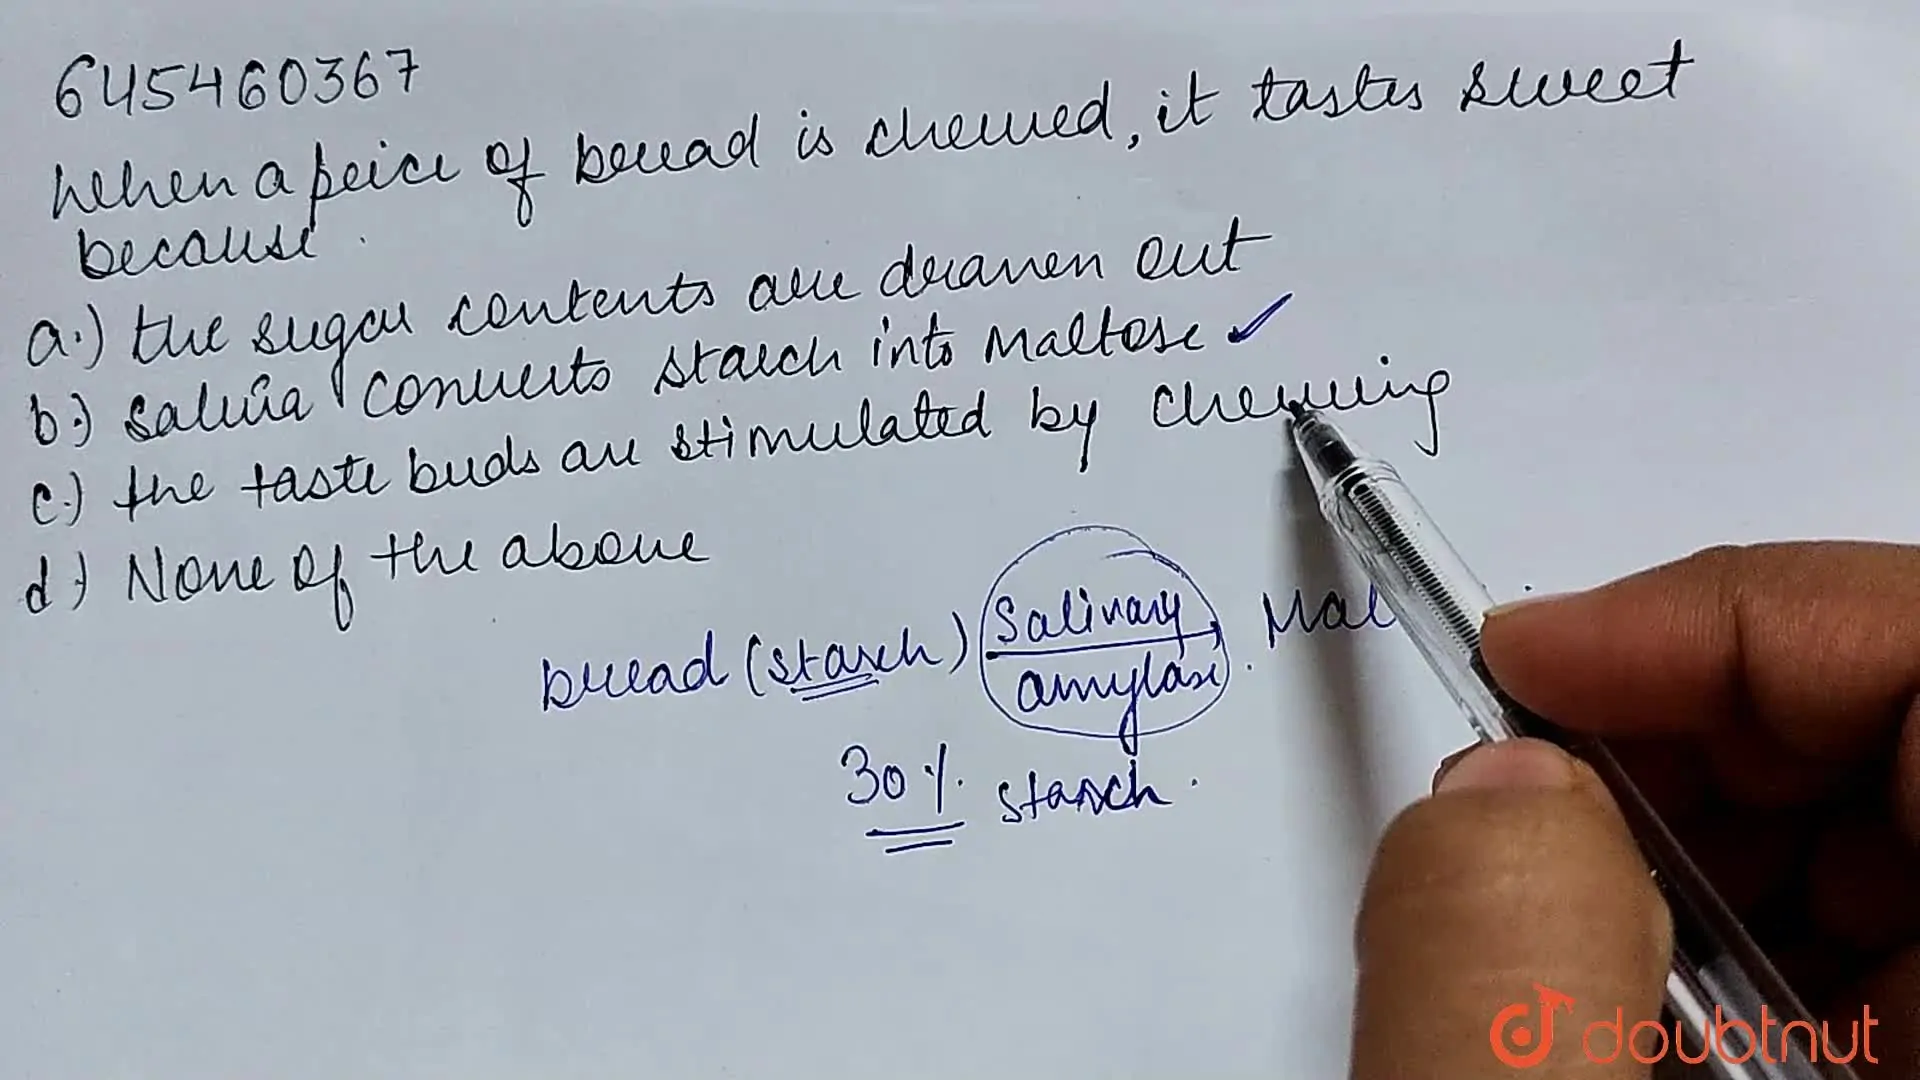 645460367
When a peice of bread is chewed, it tastes sweet
because.
a.) the sugar contents are drawn out
b.) saliva converts starch into Maltose ✓
c.) the taste buds are stimulated by chewing
d.) None of the above
bread (starch) salivary amylase. Mal
30% starch.
doubtnut